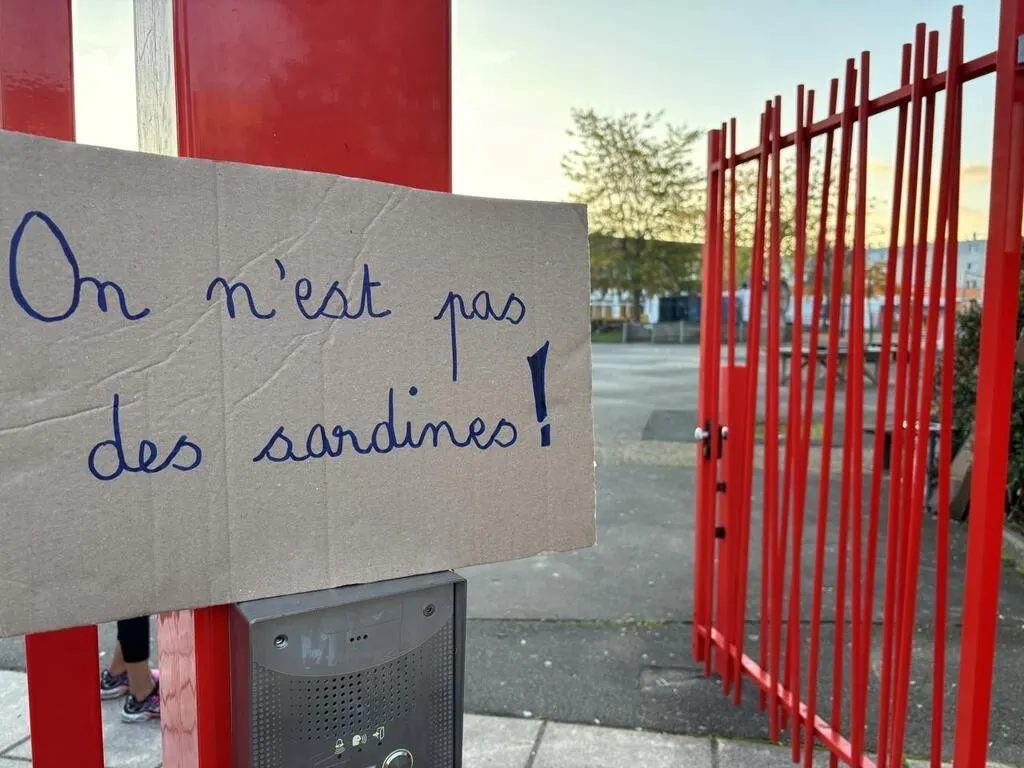 On n'est pas
des sardines !